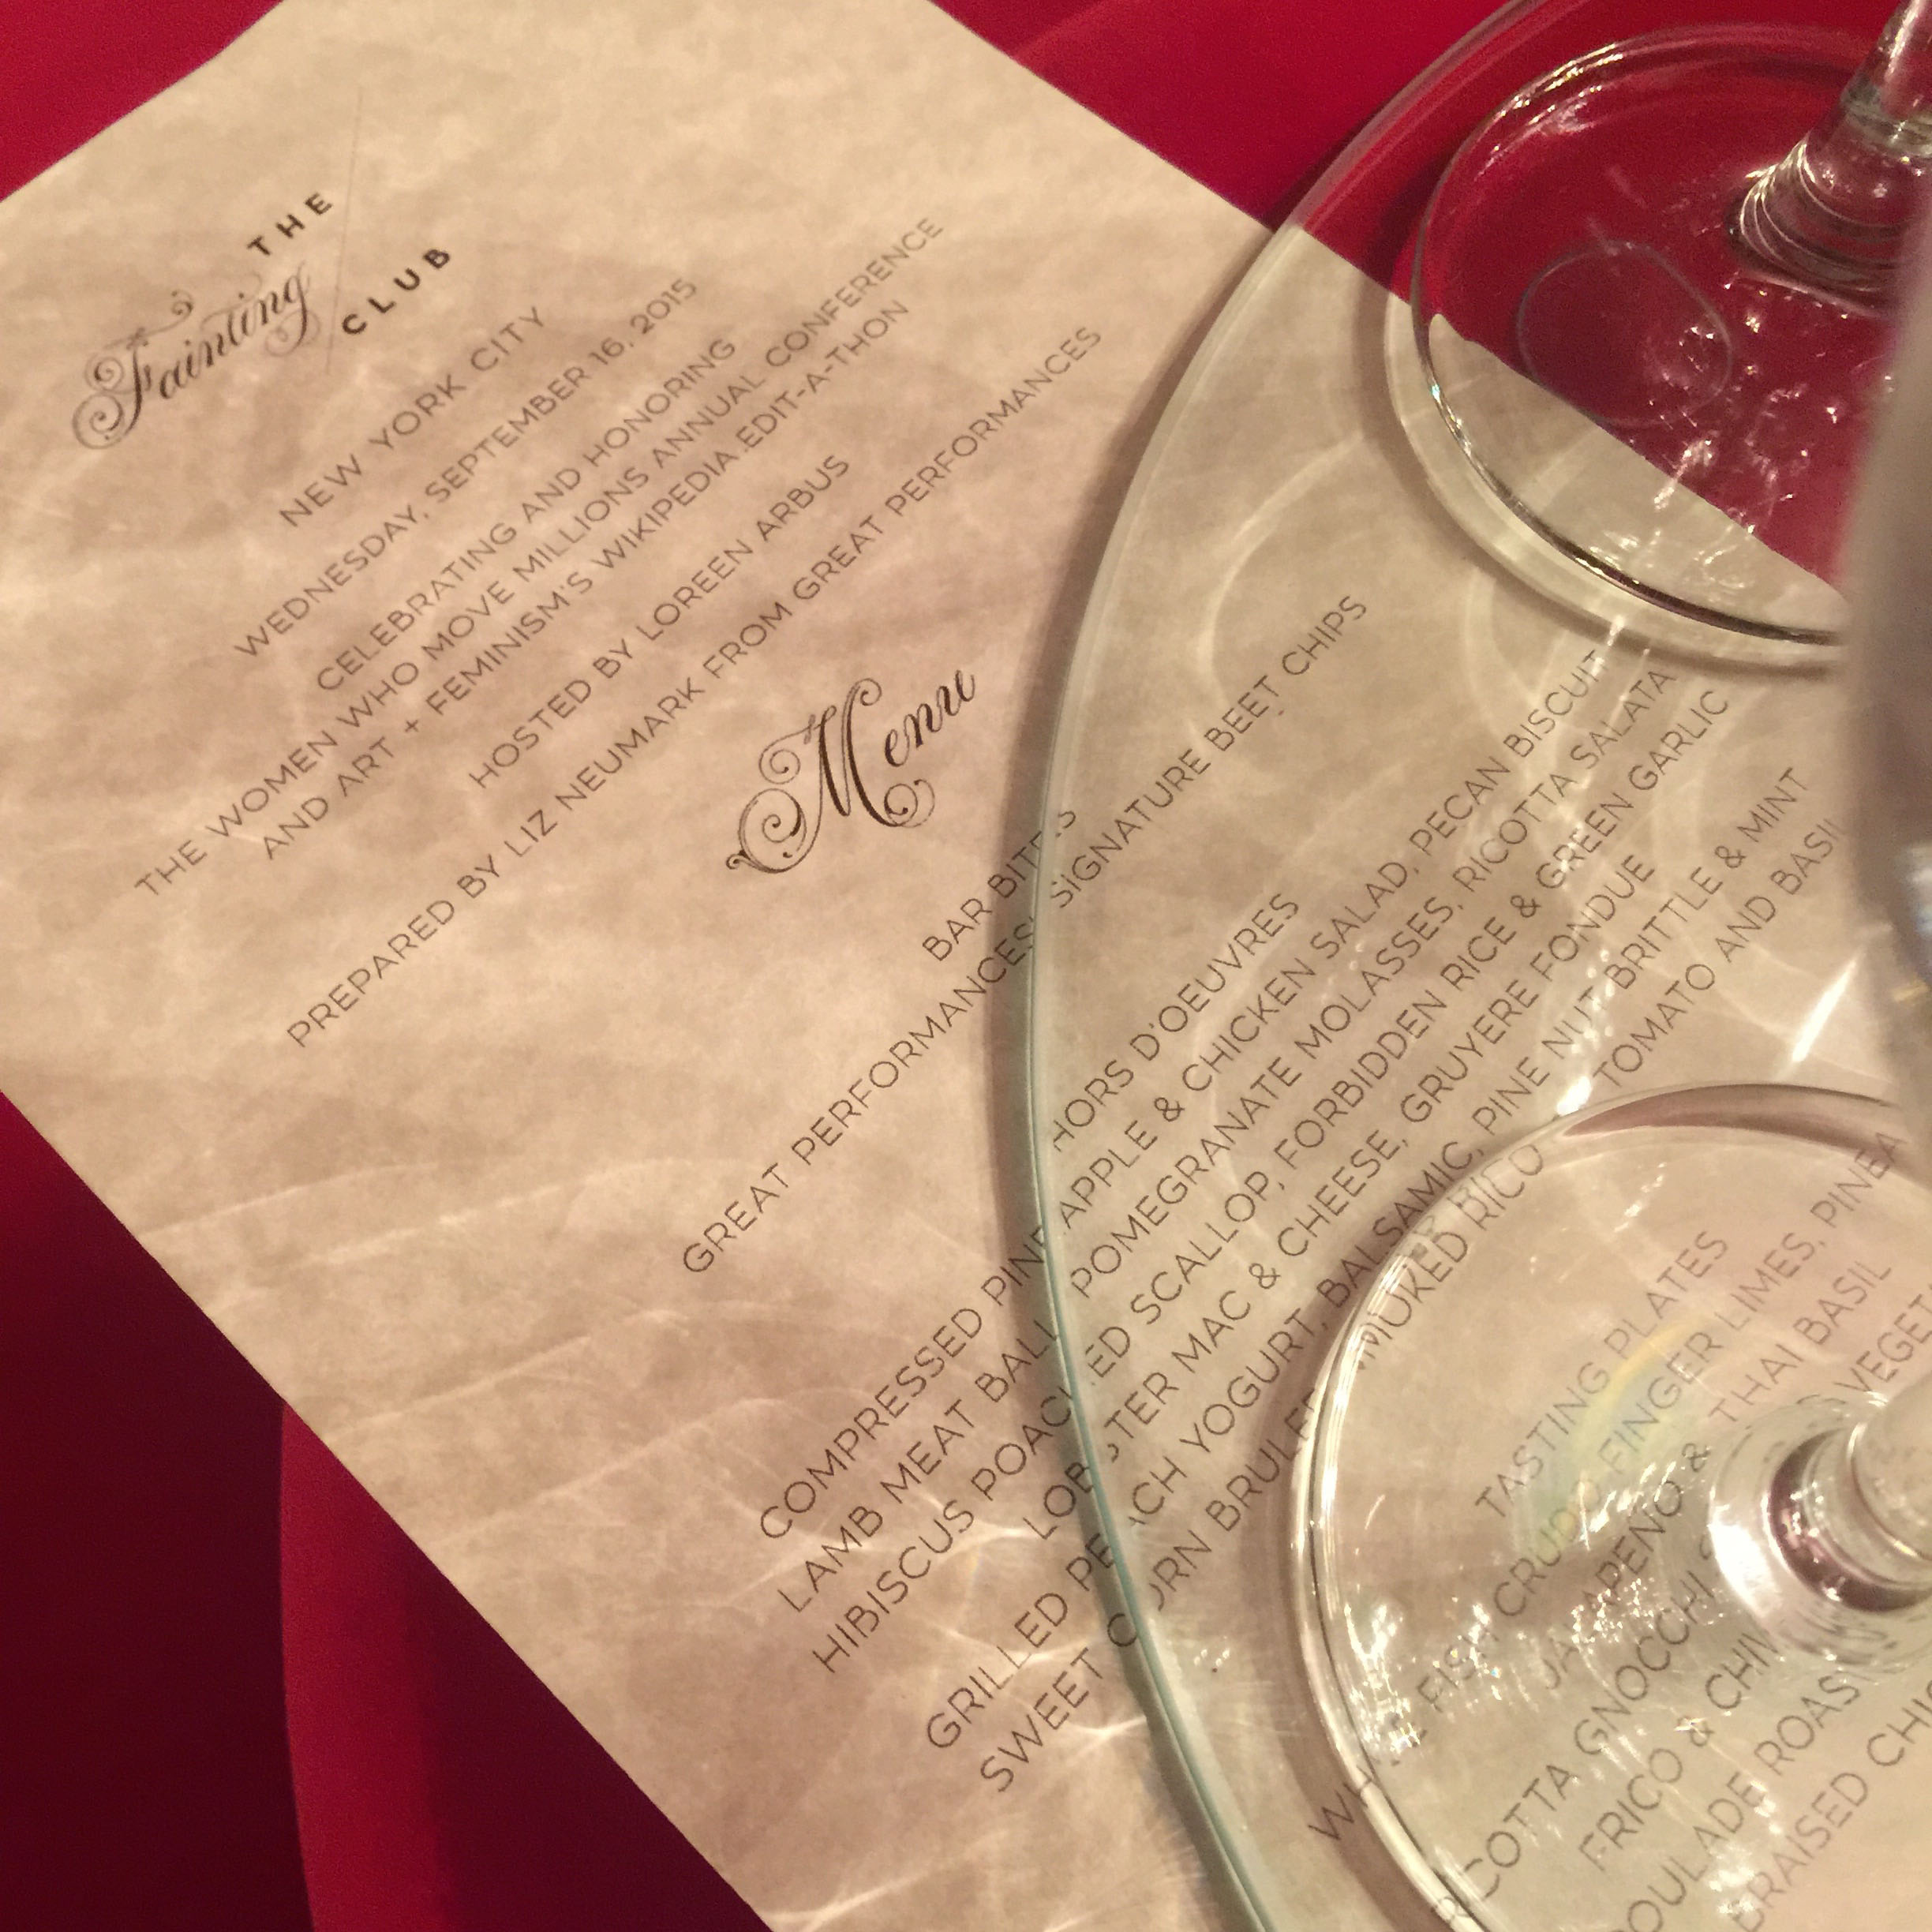 THE
Fainting
CLUB
NEW YORK CITY
WEDNESDAY, SEPTEMBER 16, 2015
CELEBRATING AND HONORING
THE WOMEN WHO MOVE MILLIONS ANNUAL CONFERENCE
AND ART + FEMINISM'S WIKIPEDIA EDIT-A-THON
HOSTED BY LOREEN ARBUS
PREPARED BY LIZ NEUMARK FROM GREAT PERFORMANCES
Menu
BAR BITES
GREAT PERFORMANCES' SIGNATURE BEET CHIPS
HORS D'OEUVRES
COMPRESSED PINEAPPLE & CHICKEN SALAD, PECAN BISCUIT
LAMB MEAT BALL, POMEGRANATE MOLASSES, RICOTTA SALATA
HIBISCUS POACHED SCALLOP, FORBIDDEN RICE & GREEN GARLIC
LOBSTER MAC & CHEESE, GRUYERE FONDUE
GRILLED PEACH YOGURT, BALSAMIC, PINE NUT BRITTLE & MINT
SWEET CORN BRULEE TOMATO AND BASIL
TASTING PLATES
FISH CRUDO FINGER LIMES,
JALAPENO & THAI BASIL
RICOTTA GNOCCHI
FRICO &
ROAS
BRAISED